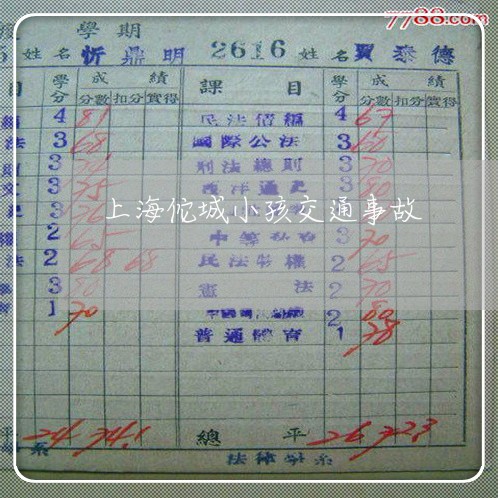 7788.com
學期
姓名 忻鼎明 2616 姓名 賈泰德
目 學分 成績 課目 學分 成績
分數 扣分 實得 分數 扣分 實得
4 81 民法債編 4 67
法 3 68 國際公法 3 60
3 刑法總則 3 70
3 75 西洋通史 3 70
上海佗城小孩交通事故
2 65 3 70
法 2 68 68 民法物權 2 65
3 憲法 2 70
1 70 2 80
普通體育 1 78
平 24 74.1 總平 26 72.3
系 法律學系